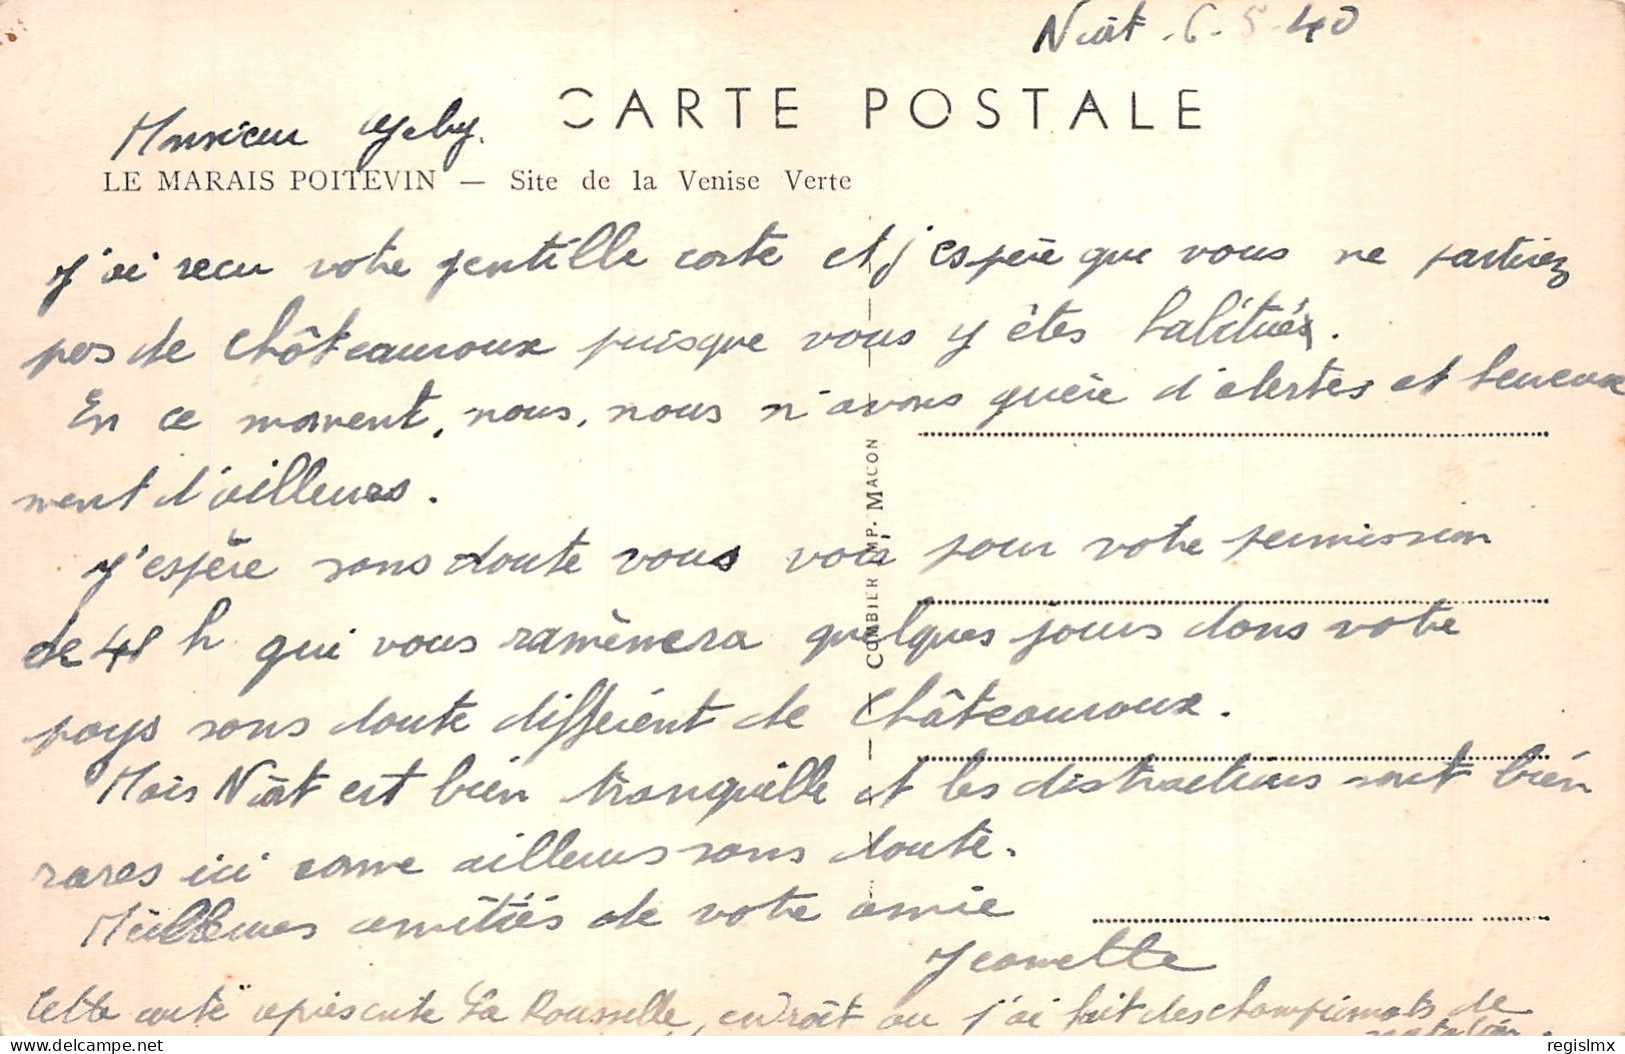 Niort. 6-5-40
CARTE POSTALE
Monsieur
LE MARAIS POITEVIN — Site de la Venise Verte
J'ai reçu votre gentille carte et j'espère que vous ne partirez
pas de Châteauroux puisque vous y êtes habitués.
En ce moment, nous, nous n'avons guère d'alertes et heureuse
ment d'ailleurs.
J'espère sans doute vous voir pour votre permission
de 48 h qui vous ramènera quelques jours dans votre
pays sans doute différent de Châteauroux.
Mais Niort est bien tranquille et les distractions sont bien
rares ici comme ailleurs sans doute.
Meilleures amitiés de votre amie
Jeannette
Cette carte représente La Rousselle, endroit ou j'ai fait des championnats de
natation.
COMBIER IMP. MACON
regislmx
delcampe.net